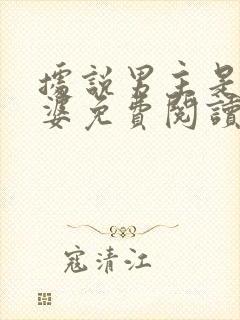 據說男主是
婆免費閱讀
寇清江